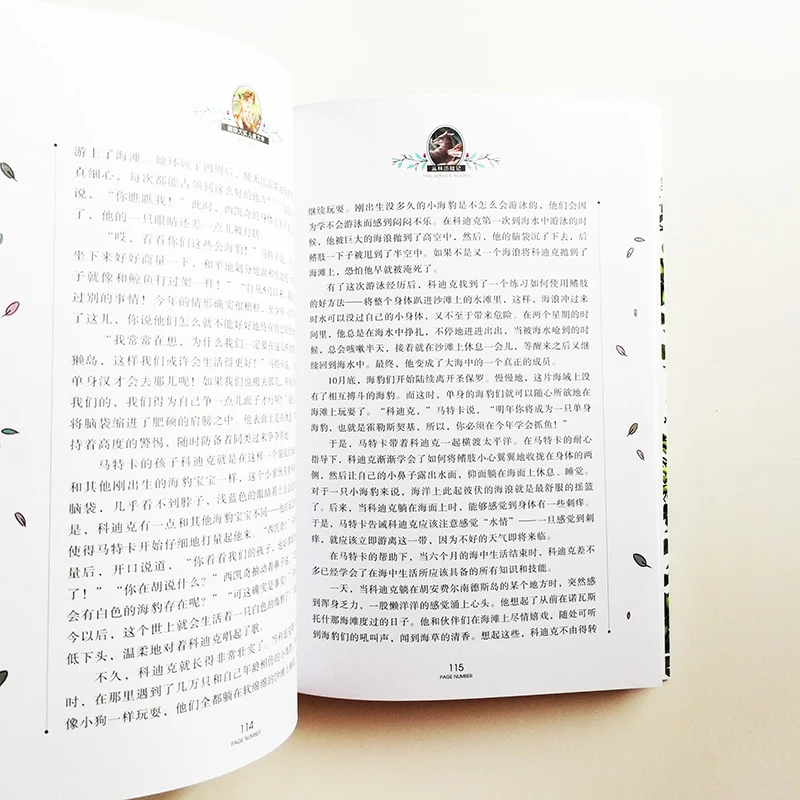 国际大奖儿童文学
游上了海滩。她环顾了四周后,便无比
真细心,每次都能占领到这么好的地方
说,“你瞧瞧我!”此时,西凯奇的身体
了,他的一只眼睛还差一点儿被打瞎
“哎,看看你们这些公海豹!”马特卡
坐下来好好商量一下,和平地划分地盘
子就像和鲸鱼打过架一样!”“自从5月以来,我
过别的事情!今年的情形确实很糟糕,至少
了这儿,你说他们怎么就不能好好地待在自己
“我常常在想,为什么我们一定要在
獭岛,这样我们或许会生活得更好!”
单身汉才会去那儿呢!如果我们也搬去那
我们的,我们得为自己争一点儿面子才行
将脑袋缩进了肥硕的肩膀之中。他表面上
持着高度的警惕,随时防备着同类过来争夺地
马特卡的孩子科迪克就是在这样一个混乱
和其他刚出生的海豹宝宝一样,这个小家伙
脑袋,几乎看不到脖子,浅蓝色的眼睛看上去
是,科迪克有一点和其他海豹宝宝不同——他
使得马特卡开始仔细地打量起他来。“西凯奇
量后,开口说道,“你看看我们的孩子,他
了!”“你在胡说什么?”西凯奇抽动着鼻子
会有白色的海豹存在呢?”“可这确实是事实
今以后,这个世上就会生活着一只白色的海豹
低下头,温柔地对着科迪克唱起了歌。
不久,科迪克就长得非常壮实了。当科迪克
时,在那里遇到了几万只和自己年龄相仿的小海豹
像小狗一样玩耍,他们全都躺在软绵绵的沙滩上
114
PAGE NUMBER
丛林历险记
THE JUNGLE BOOKS
继续玩耍。刚出生没多久的小海豹是不怎么会游泳的,他们会因
为学不会游泳而感到闷闷不乐。在科迪克第一次到海水中游泳的时
候,他被巨大的海浪抛到了高空中,然后,他的脑袋沉了下去,后
鳍肢一下子被甩到了半空中。如果不是又一个海浪将科迪克抛到了
海滩上,恐怕他早就被淹死了。
有了这次游泳经历后,科迪克找到了一个练习如何使用鳍肢
的好方法——将整个身体趴进沙滩上的水滩里,这样,海浪冲过来
时水可以没过自己的小身体,又不至于带来危险。在两个星期的时
间里,他总是在海水中挣扎,不停地进进出出,当被海水呛到的时
候,总会咳嗽半天,接着就在沙滩上休息一会儿,等醒来之后又继
续回到海水中。最终,他变成了大海中的一个真正的成员。
10月底,海豹们开始陆续离开圣保罗。慢慢地,这片海域上没
有了相互搏斗的海豹。而这时,单身的海豹们就可以随心所欲地在
海滩上玩耍了。“科迪克,”马特卡说,“明年你将成为一只单身海
豹,也就是霍勒斯契基,所以,你必须在今年学会抓鱼!”
于是,马特卡带着科迪克一起横渡太平洋。在马特卡的耐心
指导下,科迪克渐渐学会了如何将鳍肢小心翼翼地收拢在身体的两
侧,然后让自己的小鼻子露出水面,仰面躺在海面上休息、睡觉。
对于一只小海豹来说,海洋上此起彼伏的海浪就是最舒服的摇篮
了。后来,当科迪克躺在海面上时,能够感觉到身体有一些刺痒。
于是,马特卡告诫科迪克应该注意感觉“水情”——一旦感觉到刺
痒,就应该立即游离这一带,因为不好的天气即将来临。
在马特卡的帮助下,当六个月的海中生活结束时,科迪克差不
多已经学会了在海中生活所应该具备的所有知识和技能。
一天,当科迪克躺在胡安费尔南德斯岛的某个地方时,突然感
到浑身乏力,一股懒洋洋的感觉涌上心头。他想起了从前在诺瓦斯
托什那海滩度过的日子。他和伙伴们在海滩上尽情嬉戏,随处可听
到海豹们的吼叫声,闻到海草的清香。想起这些,科迪克不由得转
115
PAGE NUMBER